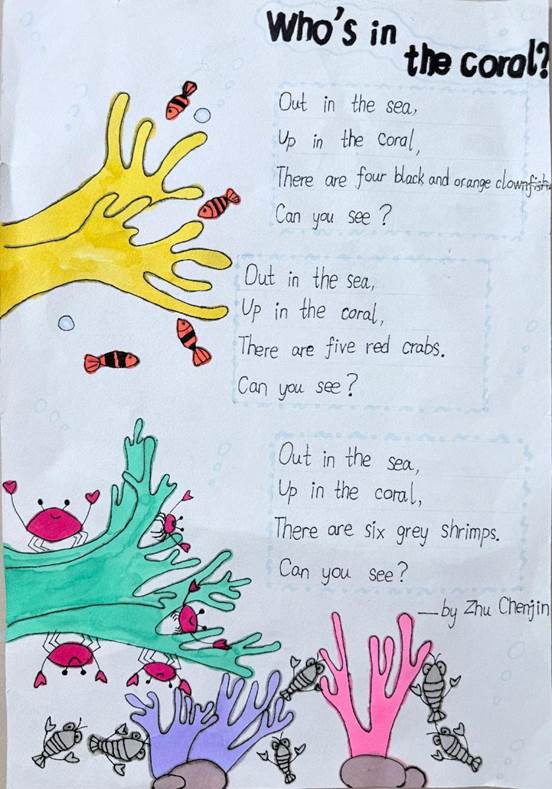 Who's in
the coral?
Out in the sea,
Up in the coral,
There are four black and orange clownfish.
Can you see?
Out in the sea,
Up in the coral,
There are five red crabs.
Can you see?
Out in the sea,
Up in the coral,
There are six grey shrimps.
Can you see?
—by Zhu Chenjin